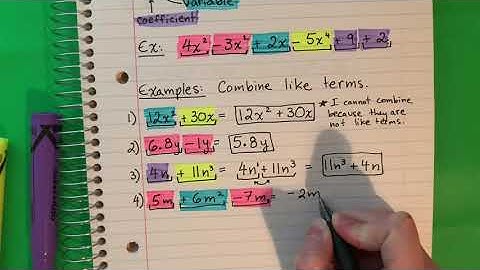 variable
coefficient
Ex: 4x² - 3x² + 2x - 5x⁴ + 9 + 2
Examples: Combine like terms.
1) 12x² + 30x = 12x² + 30x
* I cannot combine
because they are
not like terms.
2) 6.8y - 1y = 5.8y
3) 4n + 11n³ = 4n¹ + 11n³ = 11n³ + 4n
4) 5m + 6m² - 7m = -2m